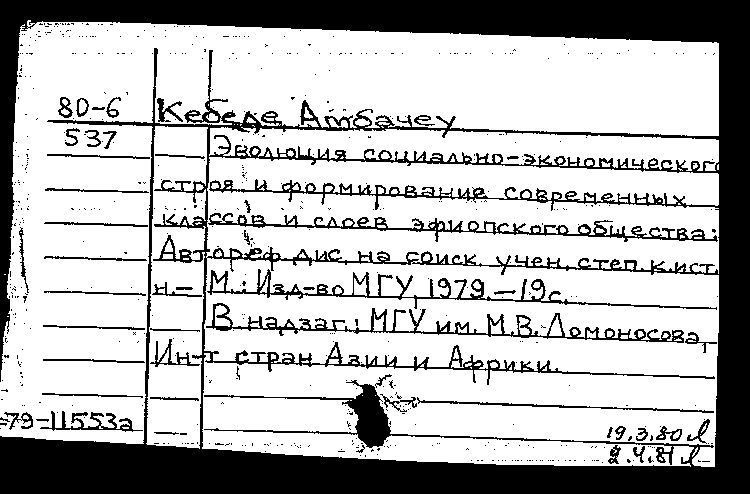 80-6 Кебеде, Амбачеу
537 Эволюция социально-экономического
строя и формирование современных
классов и слоев эфиопского общества:
Автореф. дис. на соиск. учен. степ. к. ист.
н.- М.: Изд-во МГУ, 1979.-19с.
В надзаг.: МГУ им. М.В. Ломоносова,
Ин-т стран Азии и Африки.
=79-11553а
19.3.80 Л
2.4.81 Л